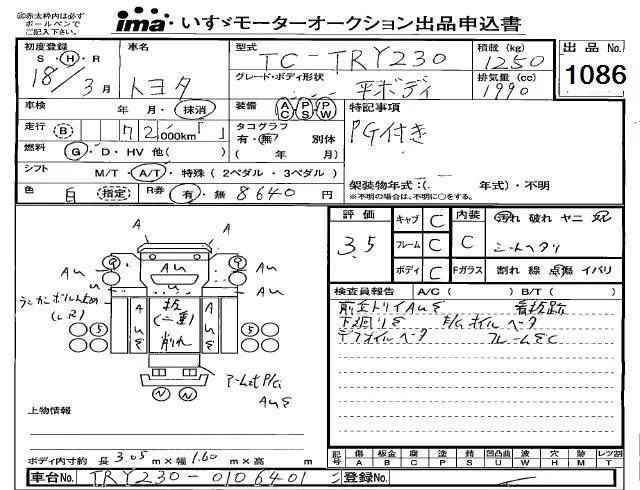 ㊟赤太枠内は必ず
ボールペンで
ご記入下さい。
ima いすゞモーターオークション出品申込書
初度登録 車名 型式 TC-TRY230 積載(kg) 1250 出品No.
S・H・R 18/3月 トヨタ グレード・ボディ形状 平ボディ 排気量(cc) 1990 1086
車検 年 月・抹消 装備 AC PS PW 特記事項
走行 B 72,000km「 」 タコグラフ 有・無 別体 PG付き
燃料 G・D・HV 他( ) ( 年 月)
シフト M/T・A/T・特殊(2ペダル・3ペダル) 架装物年式:( 年式)・不明
色 白 指定 R券 有・無 8640円 ※不明の場合は、不明に○をする。
評価 3.5 キャブ C 内装 C 汚れ 破れ ヤニ ヌレ
フレーム C シートヘタリ
ボディ C Fガラス 割れ 線 点傷 イバリ
検査員報告 A/C( ) B/T( )
看板跡
下廻りS E/Gオイルベタ
デフオイルベタ フレームSC
AU AU AU AU
板(二重)削れ
アームP/G
AUS
上物情報
ボディ内寸約 長 3.05 m×幅 1.60 m×高 m
記号 傷 A 板金 B 腐 C 塗 P 錆 S 凹凸曲 U 波 W 穴 H 跡 M レンズ割 T
車台No. TRY230-0106401 登録No.